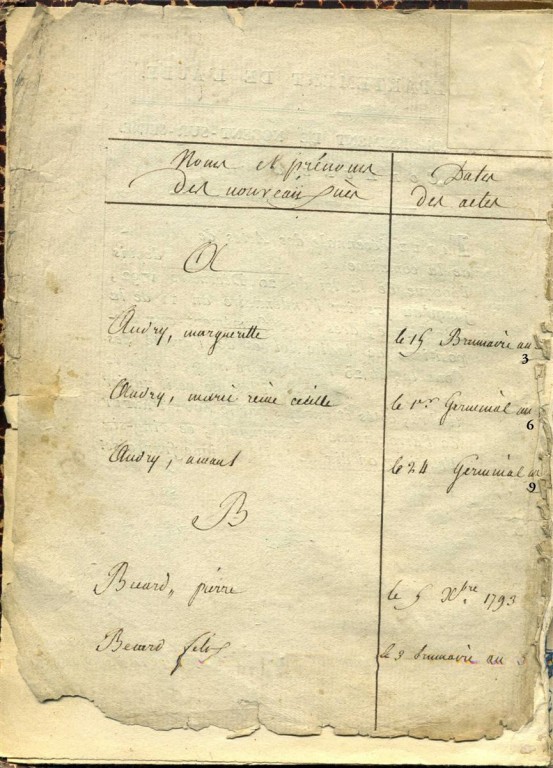 Noms et prénoms
des nouveaux nés
Dates
des actes
A
Audry, margueritte
le 15 Brumaire an
3
Audry, marie reine
le 1er Germinal an
6
Audry, amant
le 24 Germinal an
9
B
pierre
le 5 Xbre 1793
le 3 brumaire an 3